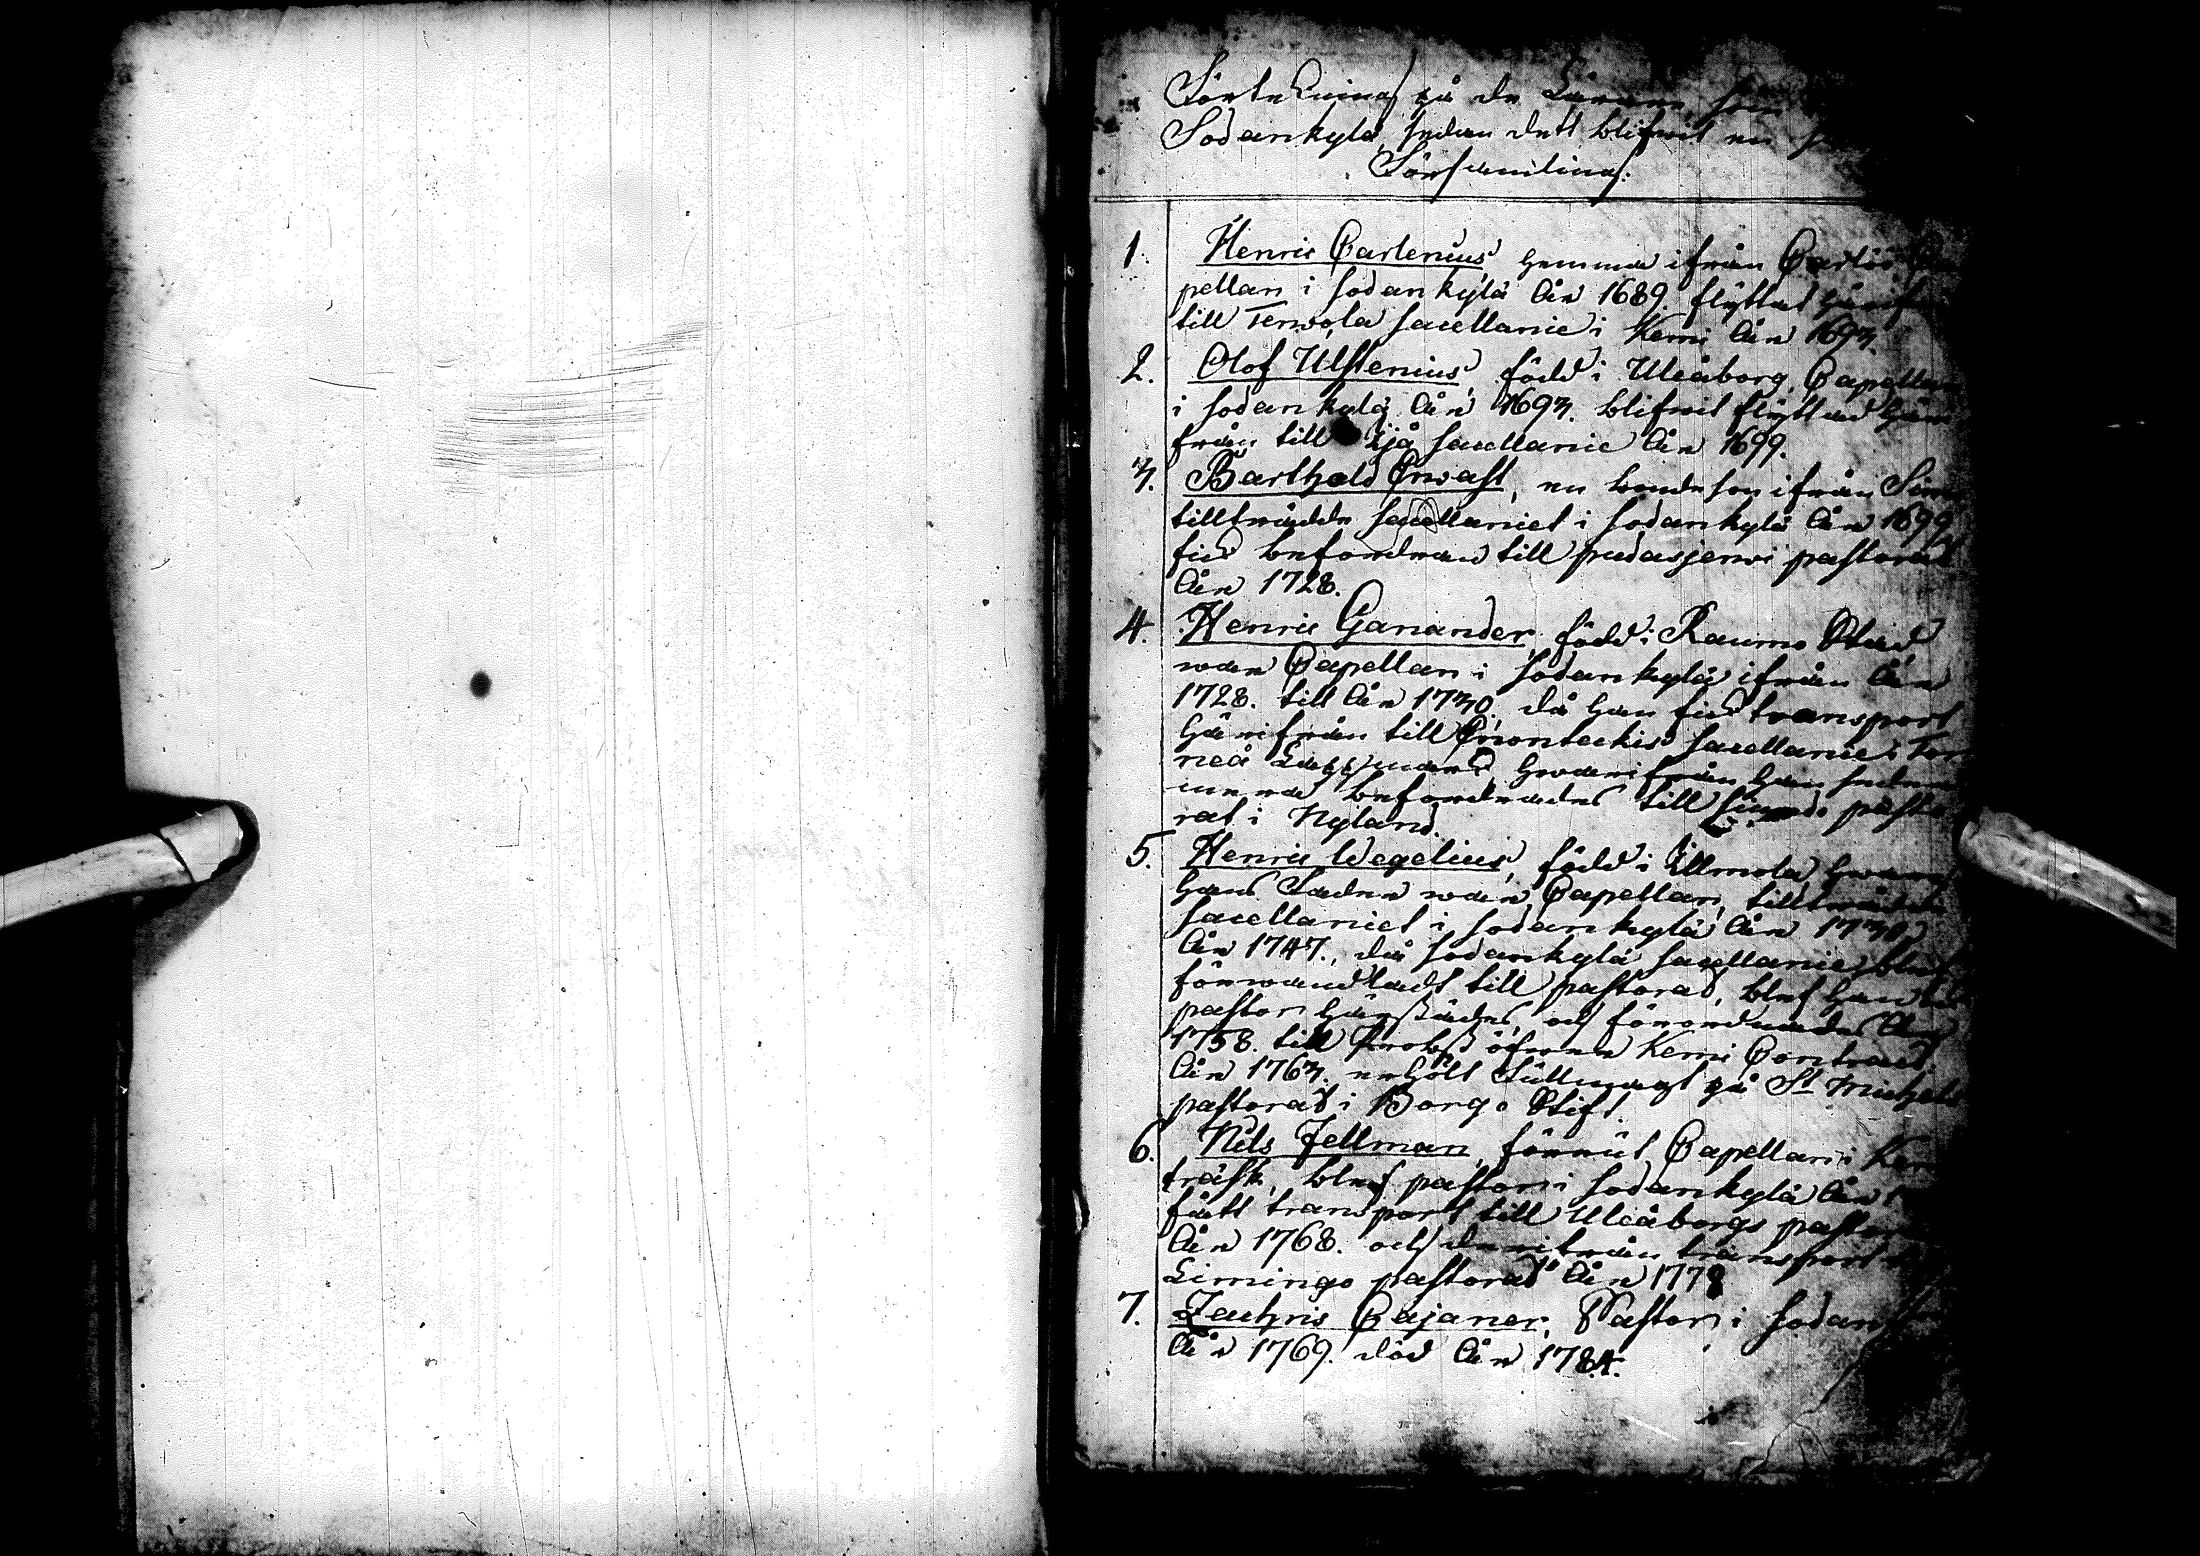 Förtekning på de Lärare som
Sodankylä, sedan dett blifwit en
Församling.
1. Henric Carlenius hemma ifrån Carlö
pellan i Sodankylä År 1689. flyttat härifrån
till Terwola sacellanie i Kemi År 1693.
2. Olof Ulstenius, född i Uleåborg, Capellan
i Sodankylä År 1693. blifwit flyttad här
från till Ijå sacellanie År 1699.
3. Barthold Erwast, en bondeson ifrån
tillträdde sacellaniet i Sodankylä År 1699,
fick befordran till pudasjerwi pastorat
År 1728.
4. Henric Ganander, född i Raumo Stad
war Capellan i Sodankylä ifrån År
1728. till År 1730. då han fick transport
härifrån till Enonteckis sacellanie i Tor
neå Lappmark, hwarifrån han sedan
mera befordrades till pasto
rat i Nyland.
5. Henric Wegelius, född i Illmola hwarest
hans Fader war Capellan, tillträdde
sacellaniet i Sodankylä År 1730,
År 1747., då Sodankylä sacellanie blef
förwandladt till pastorat, blef han
pastor härstädes, och förordnades År
1758. till Probst öfwer Kemi Contract
År 1763. erhölt Fullmagt på St Michels
pastorat i Borgo Stift.
6. Nils Fellman, förrut Capellan i Kemi
träsk, blef pastor i Sodankylä År
fått transport till Uleåborgs pastorat
År 1768. och derifrån transport
Limingo pastorat År 1778
7. Zachris Cajaner, Pastor i Sodan
År 1769. död År 1784.